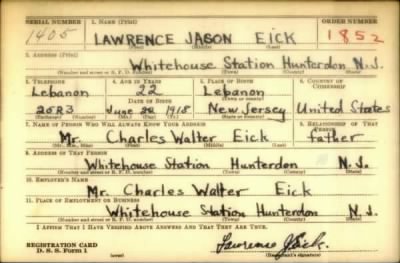 SERIAL NUMBER 1. NAME (Print) ORDER NUMBER
1405 LAWRENCE JASON EICK 1852
(First) (Middle) (Last)
2. ADDRESS (Print)
Whitehouse Station Hunterdon N.J.
(Number and street or R. F. D. number) (Town) (County) (State)
3. TELEPHONE 4. AGE IN YEARS 5. PLACE OF BIRTH 6. COUNTRY OF CITIZENSHIP
Lebanon 22 Lebanon
DATE OF BIRTH (Town or county)
25R3 June 22 1918 New Jersey United States
(Exchange) (Number) (Mo.) (Day) (Yr.) (State or country)
7. NAME OF PERSON WHO WILL ALWAYS KNOW YOUR ADDRESS 8. RELATIONSHIP OF THAT PERSON
Mr. Charles Walter Eick father
(Mr., Mrs., Miss) (First) (Middle) (Last)
9. ADDRESS OF THAT PERSON
Whitehouse Station Hunterdon N.J.
(Number and street or R. F. D. number) (Town) (County) (State)
10. EMPLOYER'S NAME
Mr. Charles Walter Eick
11. PLACE OF EMPLOYMENT OR BUSINESS
Whitehouse Station Hunterdon N.J.
(Number and street or R. F. D. number) (Town) (County) (State)
I AFFIRM THAT I HAVE VERIFIED ABOVE ANSWERS AND THAT THEY ARE TRUE.
REGISTRATION CARD
D. S. S. Form 1 Lawrence J. Eick
(over) (Registrant's signature)